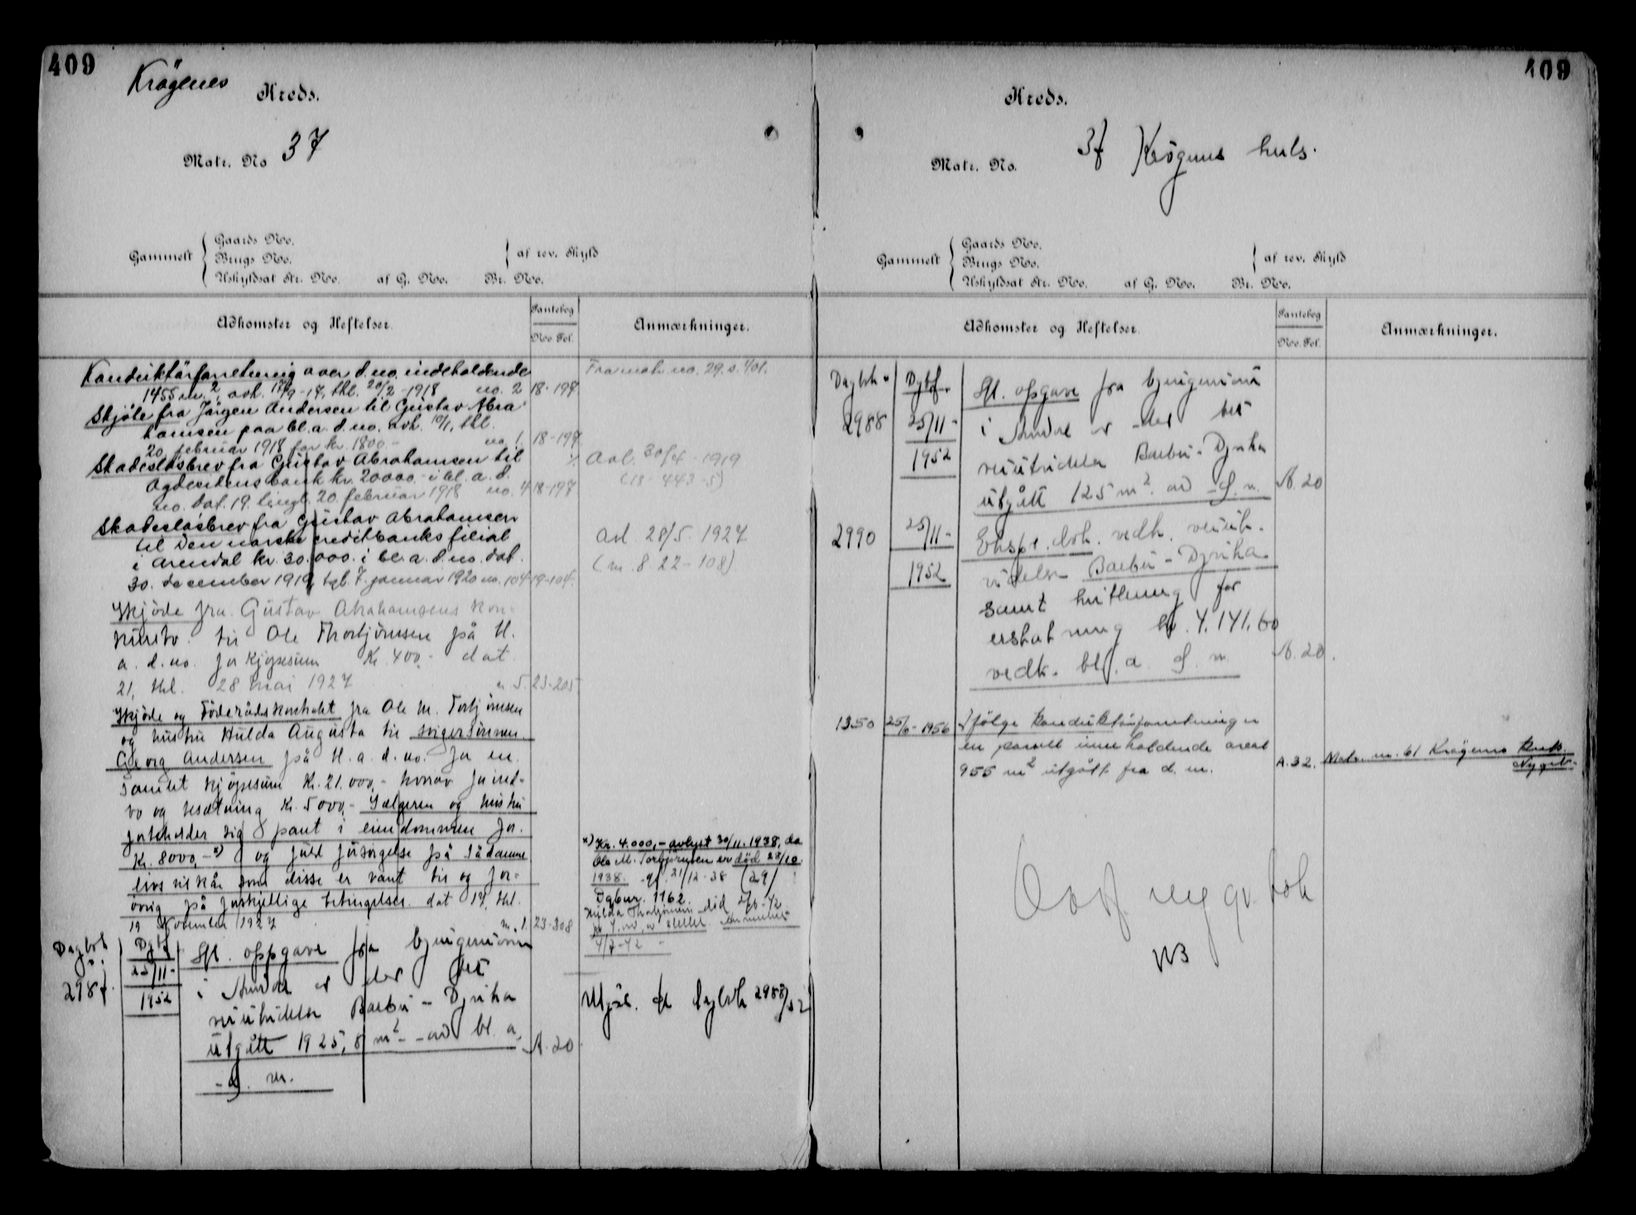 409
Krøgenes Kreds.
Matr. No 37
Gammelt
Gaards No.
Brugs No.
Uskyldsat Str. No. af G. No. Br. No.
af rev. Skyld
Adkomster og Heftelser.
Pantebog
No. Fol.
Anmærkninger.
Konduktörforretning over d. no. indeholdende
1455 m², avh. 19/9-17, thl. 20/2-1918 no. 2 18-197
Fra matr. no. 29. s. 401.
Skjöte fra Jörgen Andersen til Gustav Abra-
hamsen paa bl. a. d. no. avh. 10/1, thl.
20 februar 1918 for kr. 1800.- no. 1. 18-197
Skadeslösbrev fra Gustav Abrahamsen til
Agdesidens bank kr. 20000.- i bl. a. d.
no. dat. 19. tingl. 20. februar 1918 no. 4 18-197
Avl. 30/4-1919
(18-443-5)
Skadeslösbrev fra Gustav Abrahamsen
til Den norske creditbanks filial
i Arendal kr. 30.000.- i bl. a. d. no. dat.
30. december 1919, tgl. 7. januar 1920 no. 104 19-104.
Avl. 28/5. 1927
(m. 8 22-108)
Skjöde fra Gustav Abrahamsens kon-
kursbo til Ole Thorbjörnsen på bl.
a. d. no. for kjöpesum Kr. 400,- dat.
21, thl. 28 mai 1927 n. 5. 23-205
Skjöde og Föderådskontrakt fra Ole M. Torbjörnsen
og hustru Hulda Augusta til svigersönnen
Georg Andersen på bl. a. d. no. for en
samlet kjöpesum Kr. 21.000,- hvorav for ind-
bo og besætning Kr. 5000,- Sælgeren og hustru
forbeholder sig pant i eiendommen for
Kr. 8000,- x) og fuld forsörgelse på sådanne
livsvilkår som disse er vant til og for-
övrig på forskjellige betingelser. dat 14, thl.
19 November 1927 n. 1. 23-308
x) Kr. 4.000,- avlyst 30/11. 1938, da
Ole M. Torbjörnsen er död 28/10.
1938. 21/12-38 (29)
Dagbnr. 1162.
Hulda Thorbjörnsen död
4/7-42
Dagbok
2987
Dgbf
25/11-
1952
Spl. oppgave fra bygningenören
i Arendal er der til
riksveianlegg Barbu - Dyvika
utgått 1925,8 m² - av bl. a.
- d. m.
A. 20
Utgår. cf dagbok 2988/52
409
Kreds.
Matr. No. 37 Krøgenes hels.
Gammelt
Gaards No.
Brugs No.
Uskyldsat Str. No. af G. No. Br. No.
af rev. Skyld
Adkomster og Heftelser.
Pantebog
No. Fol.
Anmærkninger.
Dagbok
2988
Dgbf
25/11-
1952
Spl. opgave fra
i Arendal er der til
Barbu - Dyvika
utgått 125 m². av d. n.
A. 20
2990
25/11-
1952
Ekspr. dok. vedk.
Barbu - Dyvika
samt kvittering for
erstatning kr. 4.141,60
vedk. bl. a. d. n.
A. 20.
1350
25/6-1956
Ifölge konduktörforretning er
en parsell inneholdende areal
955 m² utgått fra d. m.
A. 32.
Matr. nr. 61 Krøgenes
Overf ny gr. bok